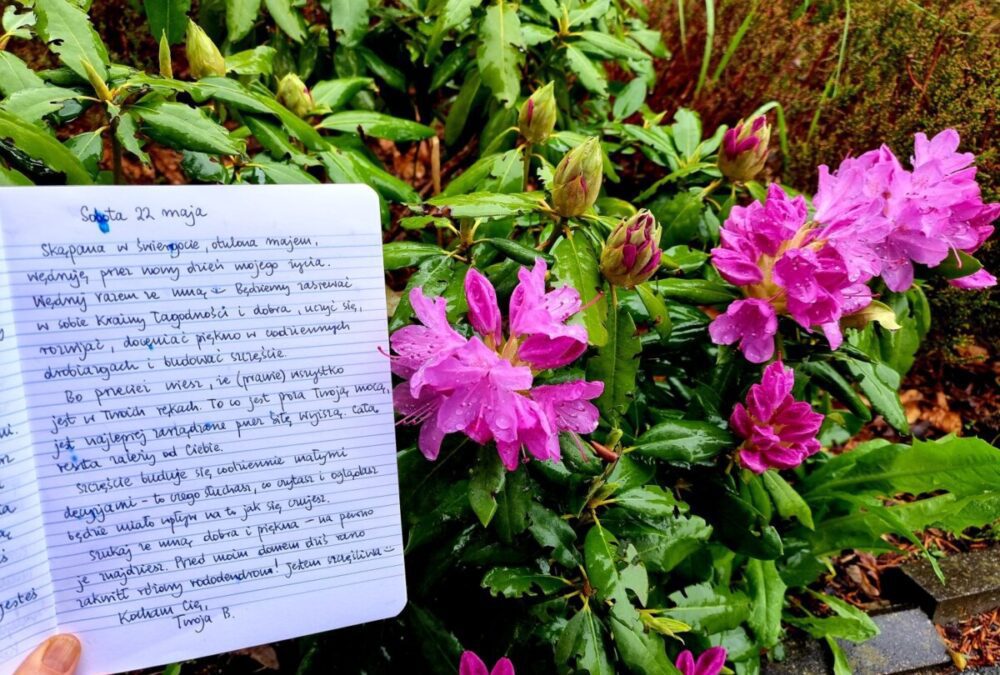 Sobota 22 maja
Skąpana w świergocie, otulona majem,
wędruję przez nowy dzień mojego życia.
Wędruj razem ze mną Będziemy zasiewać
w sobie Krainy Łagodności i dobra, uczyć się,
rozwijać, doceniać piękno w codziennych
drobiazgach i budować szczęście.
Bo przecież wiesz, że (prawie) wszystko
jest w Twoich rękach. To co jest poza Twoją mocą,
jest najlepiej zarządzane przez Siłę Wyższą. Cała
reszta zależy od Ciebie.
Szczęście buduje się codziennie małymi
decyzjami - to czego słuchasz, co czytasz i oglądasz
będzie miało wpływ na to jak się czujesz.
Szukaj ze mną dobra i piękna - na pewno
je znajdziesz. Przed moim domem dziś rano
zakwitł różowy rododendron! Jestem szczęśliwa
Kocham Cię,
Twoja B.